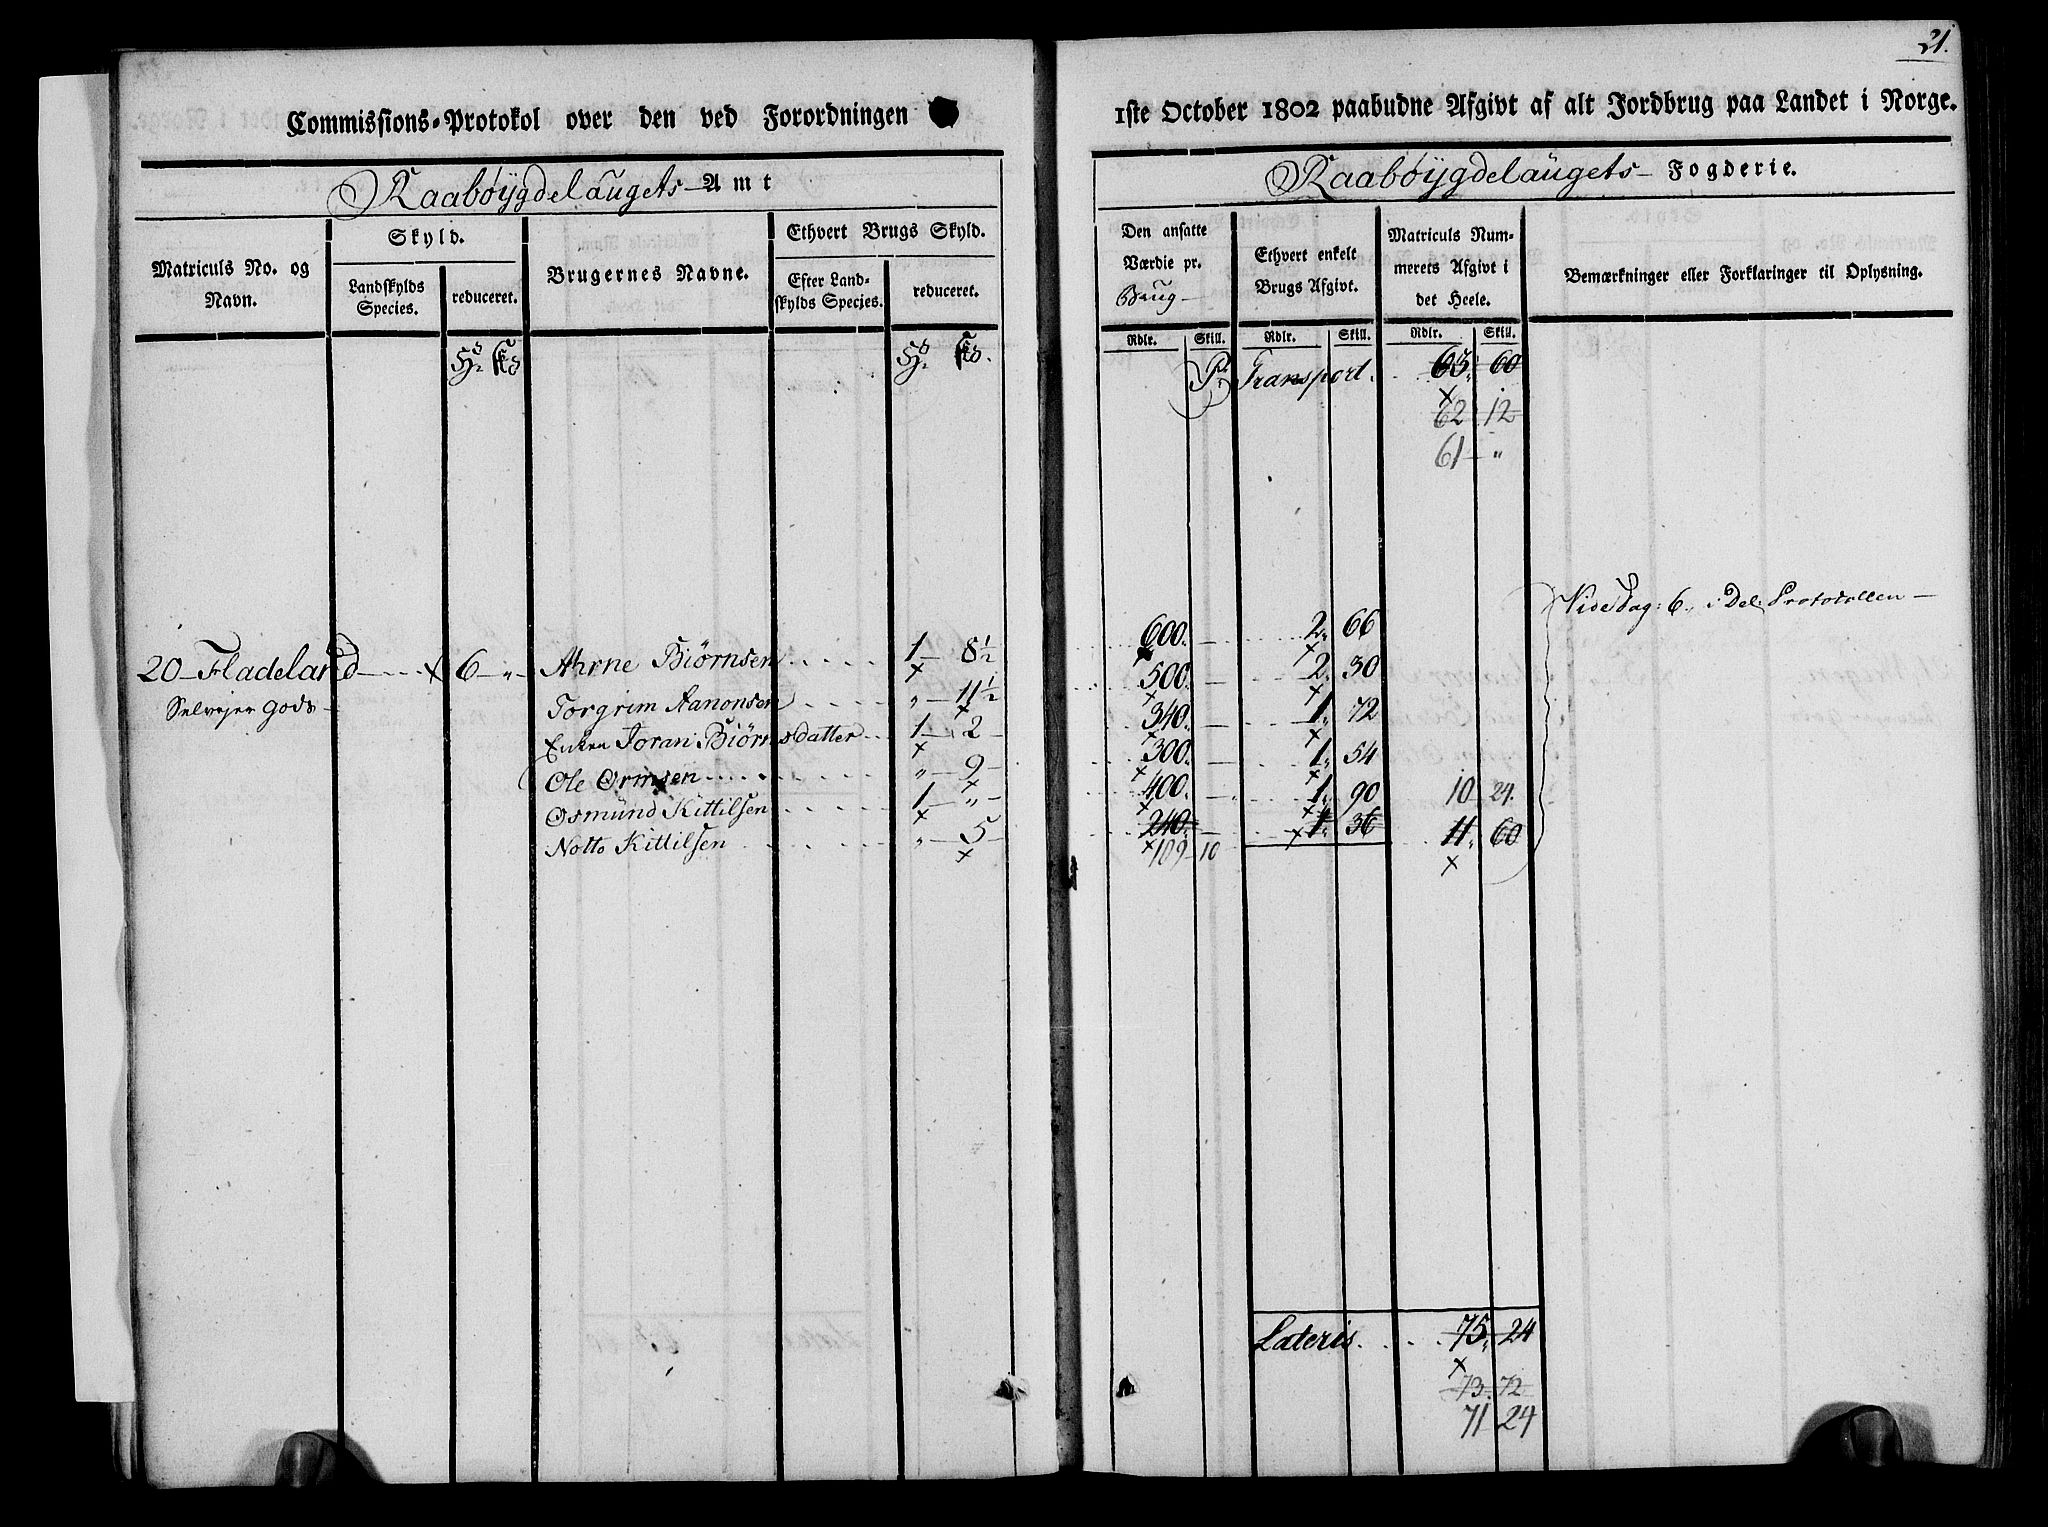 21.
Commissions-Protokol over den ved Forordningen
1ste October 1802 paabudne Afgivt af alt Jordbrug paa Landet i Norge.
Raabøygdelaugets Amt
Raabøygdelaugets Fogderie.
Matriculs No. og Navn.
Skyld.
Landskylds Species.
reduceret.
Brugernes Navne.
Ethvert Brugs Skyld.
Efter Landskylds Species.
reduceret.
Den ansatte Værdie pr. Brug
Ethvert enkelt Brugs Afgivt.
Matriculs Nummerets Afgivt i det Heele.
Bemærkninger eller Forklaringer til Oplysning.
Rdlr. Skill. Rdlr. Skill. Rdlr. Skill.
Pr. Transport. 63. 60
62 12
61 "
Vide Pag: 6, i Del: Protocollen
20 Fladeland 6 " Ahrne Biørnsen 1 8½ 600. 2. 66
Selvejer Gods Torgrim Aanonsen " 11½ 500. 2. 30
Enken Joran Biørnsdatter 1 2 340. 1. 72
Ole Ormsen " 9 300. 1. 54
Osmund Kittilsen 1 " 400. 1. 90 10 24.
Notto Kittilsen " 5 240. 1. 36 11. 60
109 10
Lateris 75. 24
73. 72
71 24